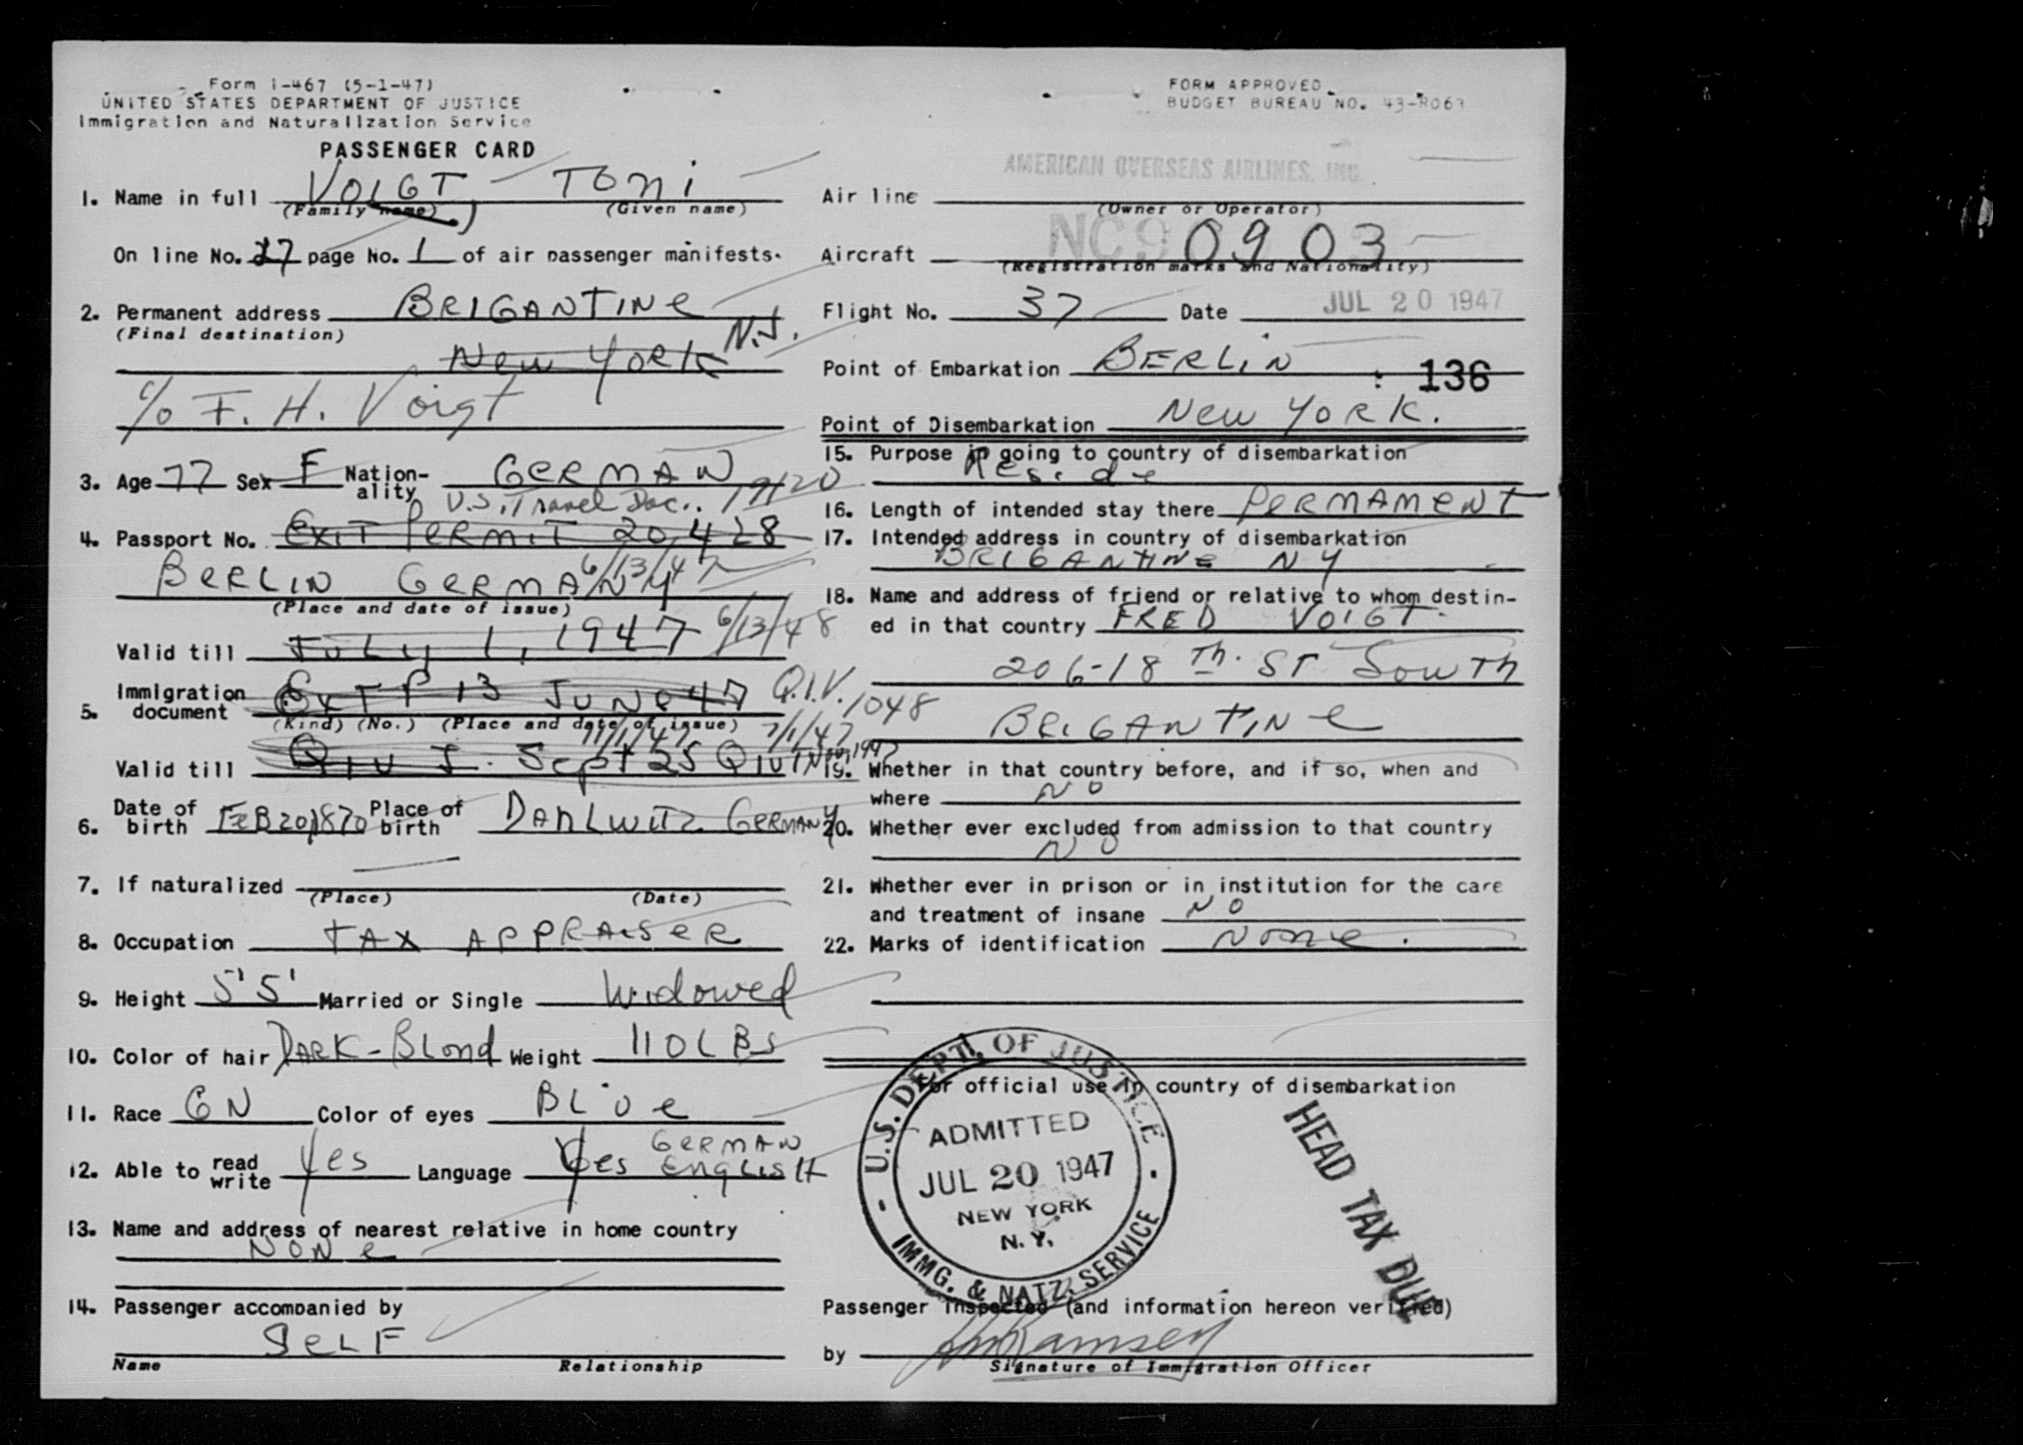 Form I-467 (5-1-47)
UNITED STATES DEPARTMENT OF JUSTICE
Immigration and Naturalization Service
PASSENGER CARD
1. Name in full VOIGT TONI
(Family name) (Given name)
On line No. 27 page No. 1 of air passenger manifests.
2. Permanent address BRIGANTINE
(Final destination)
New York N.J.
c/o F. H. Voigt
3. Age 77 Sex F Nation-ality GERMAN
U.S. Travel Doc..
4. Passport No. EXIT PERMIT 20,428
BERLIN GERMANY 6/13/47
(Place and date of issue)
Valid till July 1, 1947 6/13/48
5. Immigration document EXT P 13 JUNE 47 Q.I.V. 1048
(Kind) (No.) (Place and date of issue)
7/1/47
Valid till Sept 25
6. Date of birth FEB 20 1870 Place of birth DAHLWITZ GERMANY
7. If naturalized
(Place) (Date)
8. Occupation TAX APPRAISER
9. Height 5'5' Married or Single Widowed
10. Color of hair DARK-BLOND Weight 110 LBS
11. Race GN Color of eyes BLUE
12. Able to read write Yes Language Yes GERMAN ENGLISH
13. Name and address of nearest relative in home country
NONE
14. Passenger accompanied by
SELF
Name Relationship
FORM APPROVED
BUDGET BUREAU NO. 43-R063
AMERICAN OVERSEAS AIRLINES, INC.
Air line
(Owner or Operator)
Aircraft NC90903
(Registration marks and Nationality)
Flight No. 37 Date JUL 20 1947
Point of Embarkation BERLIN
136
Point of Disembarkation New York.
15. Purpose in going to country of disembarkation
Reside
16. Length of intended stay there PERMAMENT
17. Intended address in country of disembarkation
BRIGANTINE NY
18. Name and address of friend or relative to whom destin-
ed in that country FRED VOIGT
206-18 Th. ST South
BRIGANTINE
19. Whether in that country before, and if so, when and
where NO
20. Whether ever excluded from admission to that country
NO
21. Whether ever in prison or in institution for the care
and treatment of insane NO
22. Marks of identification None.
For official use in country of disembarkation
U.S. DEPT. OF JUSTICE
ADMITTED
JUL 20 1947
NEW YORK
N.Y.
IMMG. & NATZ. SERVICE
HEAD TAX DUE
Passenger inspected (and information hereon verified)
by Ramsey
Signature of Immigration Officer